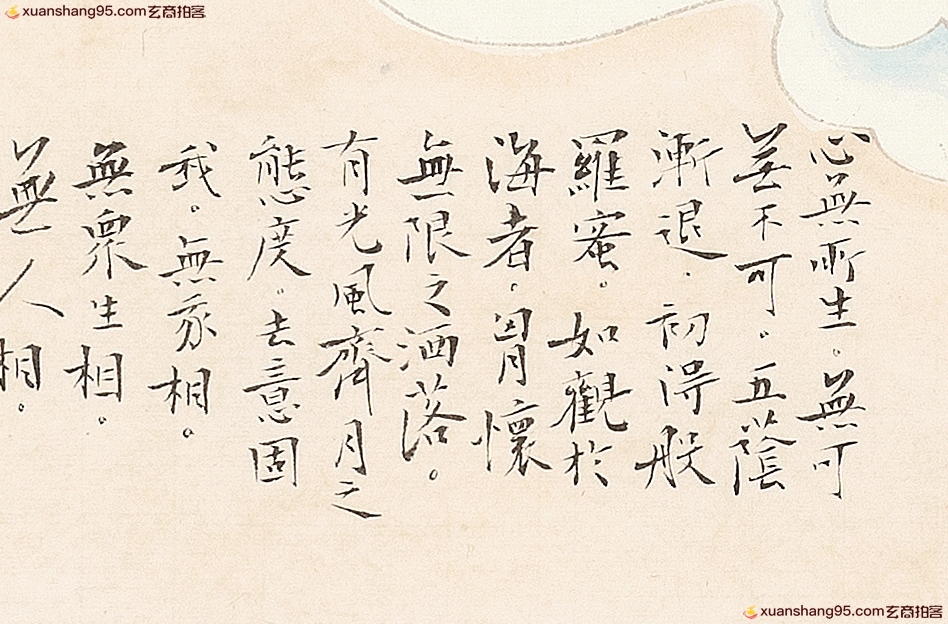 xuanshang95.com玄商拍客
xuanshang95.com玄商拍客
心無所生。無可
無不可。五蔭
漸退。初得般
羅蜜。如觀於
海者。胷懷
無限之洒落。
有光風齊月之
態度。去意固
我。無我相。
無眾生相。
無人相。
xuanshang95.com玄商拍客